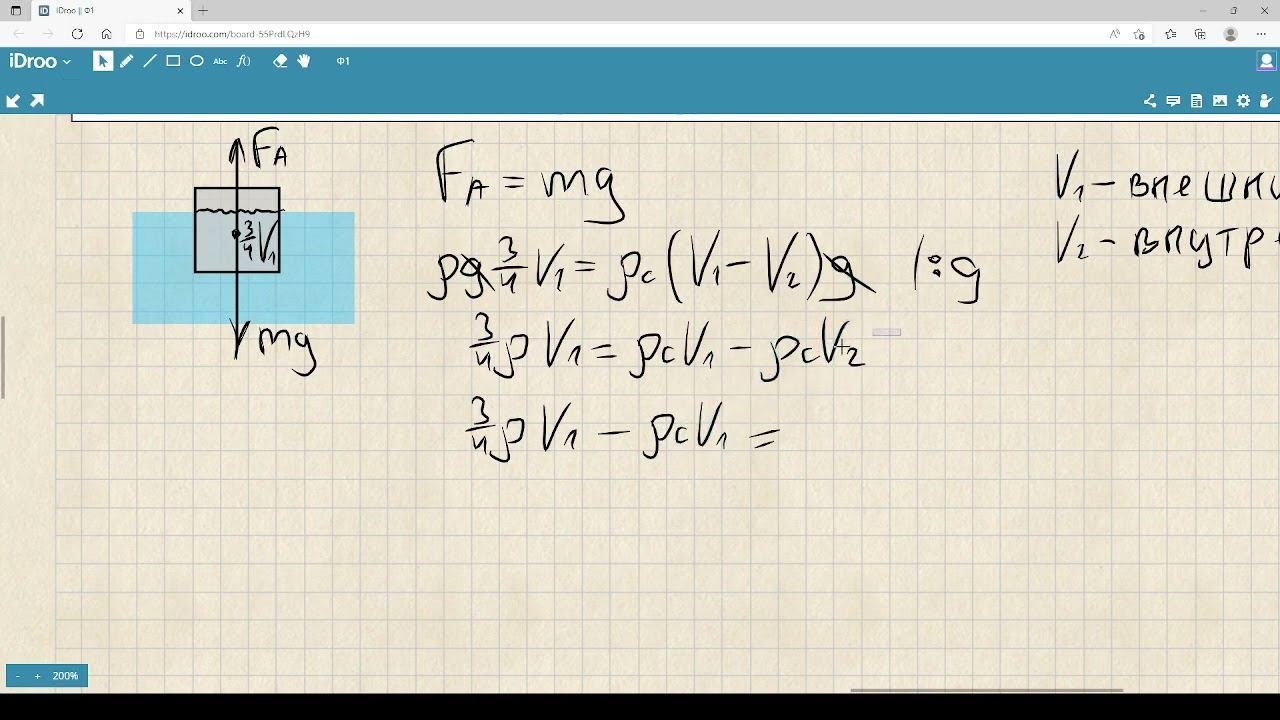 iDroo || Ф1
https://idroo.com/board-55PrdLQzH9
iDroo
Abc
f()
Ф1
F_A
3/4 V₁
mg
F_A = mg
ρg 3/4 V₁ = ρc (V₁ − V₂) g |:g
3/4 ρ V₁ = ρc V₁ − ρc V₂
3/4 ρ V₁ − ρc V₁ =
V₁ – внешни
V₂ – внутр
- + 200%